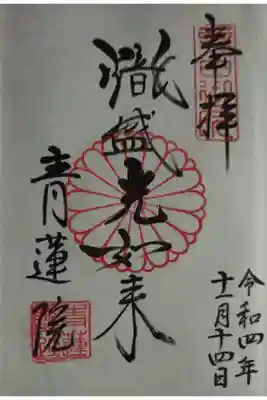 奉拝
熾盛光如来
青蓮院
令和四年
十二月十四日